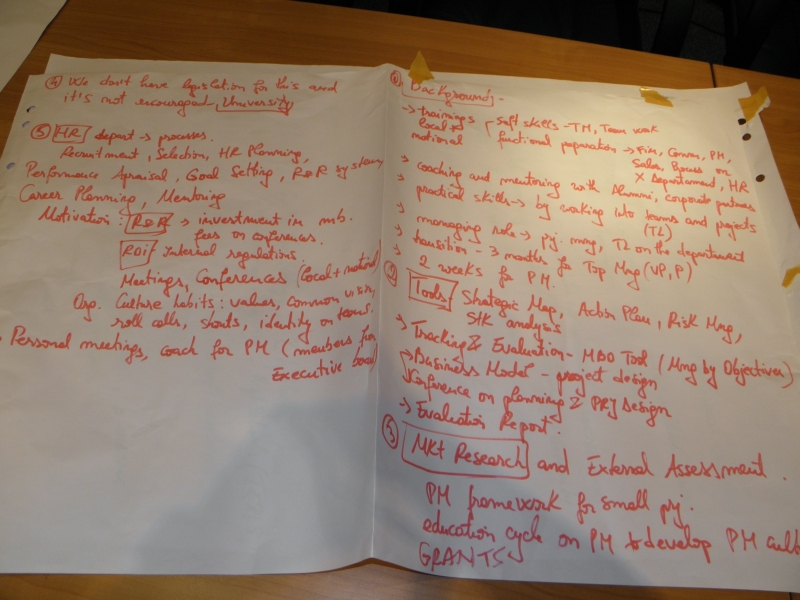 ④ We don't have legislation for this and
it's not encouraged, University
⑤ HR depart → processes.
Recruitment, Selection, HR Planning,
Performance Appraisal, Goal Setting, R&R system
Career Planning, Mentoring
Motivation: R&R → investment in mb.
fees on conferences.
Internal regulations.
Meetings, Conferences (local + national)
Org. Culture habits: values, common vision,
roll calls, shouts, identity on teams.
Personal meetings, coach for PM (members from
Executive board)
① Backgrounds -
→ trainings local + national
soft skills - TM, Team work
functional preparation → Fin, Comm, PM,
Sales, Focus on
X Departament, HR
→ coaching and mentoring with Alumni, corporate partners
→ practical skills → by working into teams and projects
(TL)
→ managing role → prj. mng, TL on the department
→ transition - 3 months for Top Mng (VP, P)
→ 2 weeks for PM.
② Tools Strategic Map, Action Plan, Risk Mng,
STK analysis
→ Tracking & Evaluation - MBO Tool (Mng by Objectives)
→ Business Model - project design
Conference on planning & PRJ Design
→ Evaluation Report.
③ MKT Research and External Assessment.
PM framework for small prj.
education cycle on PM to develop PM cult
GRANTS